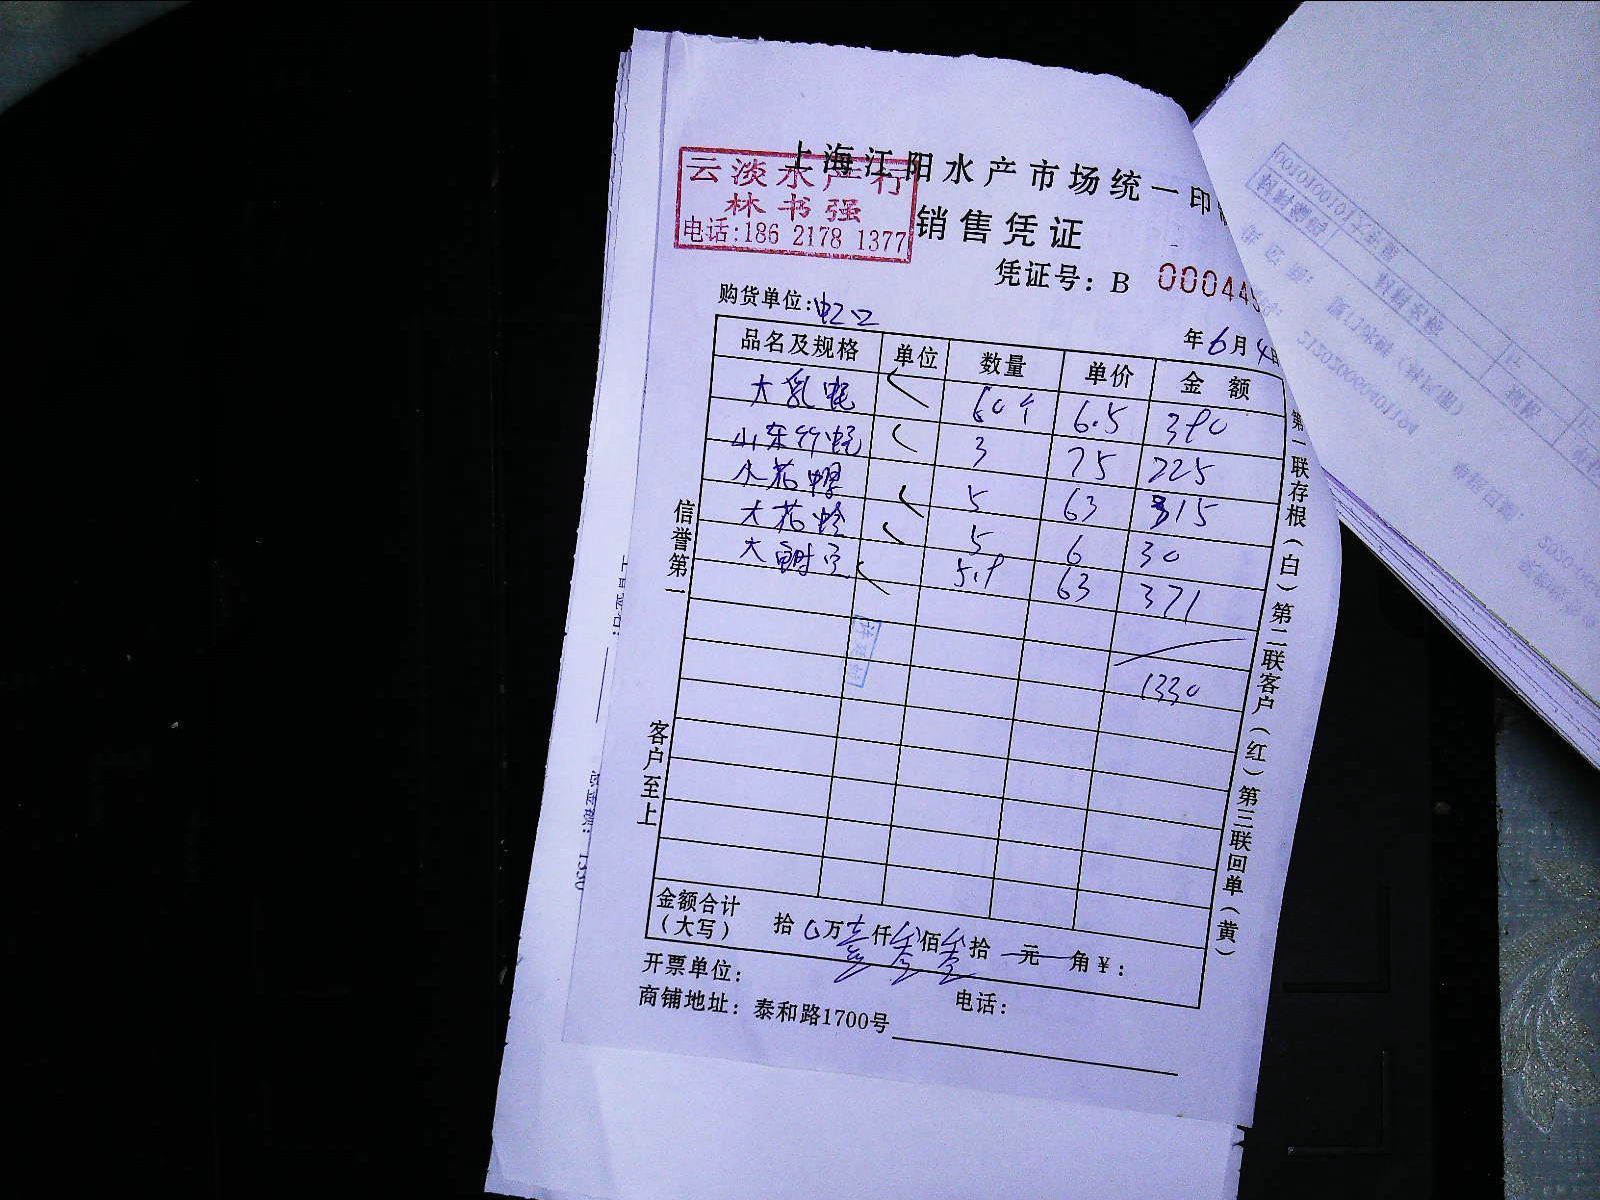 上海江阳水产市场统一印
云淡水产行
林书强
电话:186 2178 1377
销售凭证
凭证号: B 000445
购货单位:虹口
年6月4日
品名及规格 单位 数量 单价 金额
大乳 60个 6.5 390
山东 3 75 225
小花 5 63 315
大花蛤 5 6 30
大 5.9 63 371
1330
信誉第一
客户至上
第一联存根(白)第二联客户(红)第三联回单(黄)
金额合计
(大写) 拾 0万壹仟叁佰叁拾 元 角¥:
开票单位:
电话:
商铺地址: 泰和路1700号